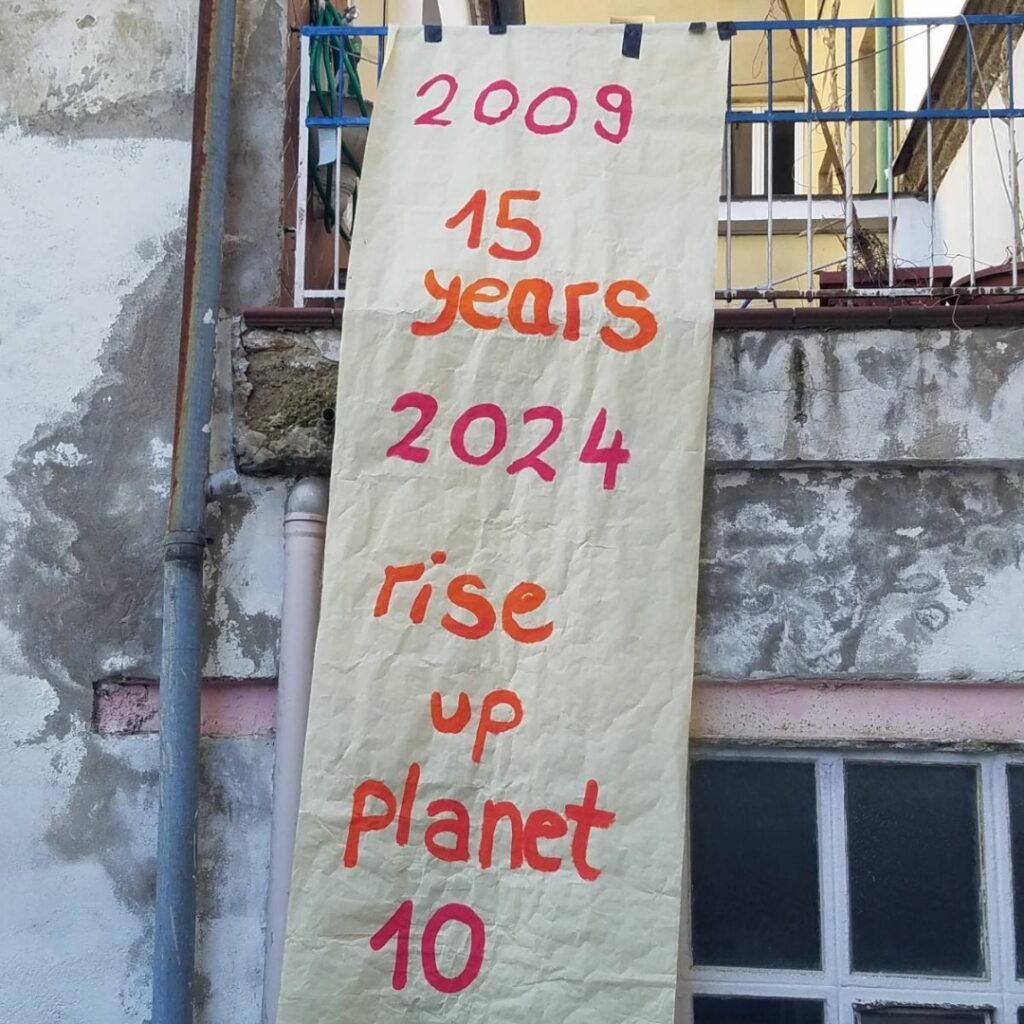 2009
15
years
2024
rise
up
planet
10